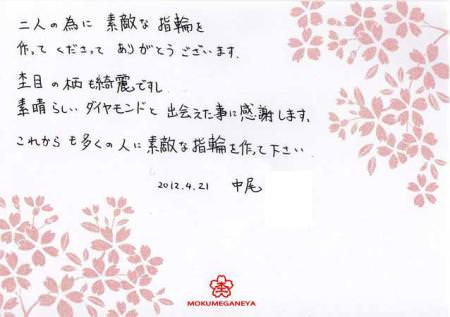 二人の為に 素敵な指輪を
作ってくださって ありがとうございます.
杢目の柄も綺麗ですし
素晴らしいダイヤモンドと出会えた事に感謝します.
これからも多くの人に素敵な指輪を作って下さい
2012.4.21 中尾
杢
MOKUMEGANEYA